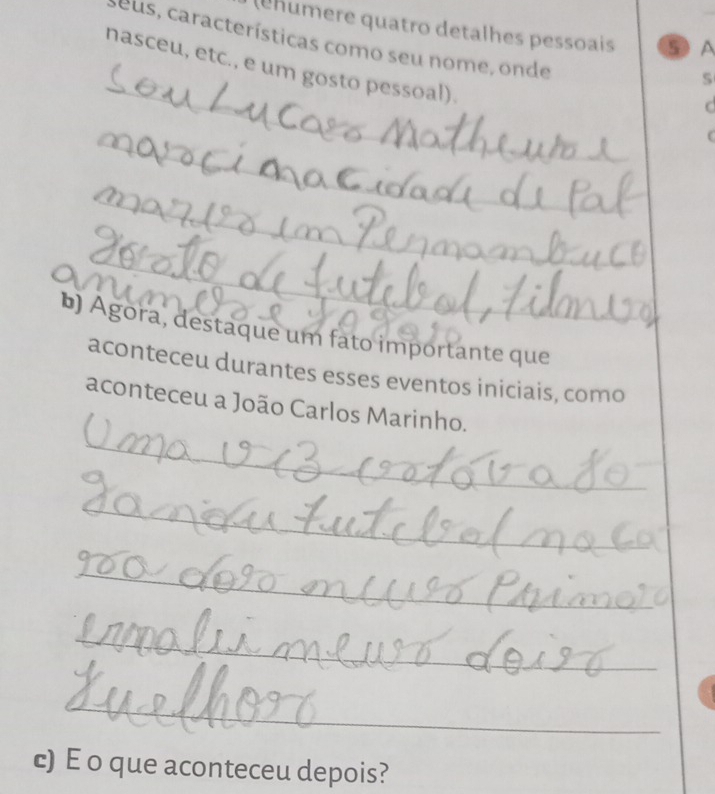 (enumere quatro detalhes pessoais
seus, características como seu nome, onde
nasceu, etc., e um gosto pessoal).
5 A
s
d
Sou Lucas Matheus e
nasci na cidade de Pal
mares em Pernambuco
gosto de futebol, filmes
animes e jogos
b) Agora, destaque um fato importante que
aconteceu durantes esses eventos iniciais, como
aconteceu a João Carlos Marinho.
Uma vez estava jo
gando futebol na ca
sa dos meus primos
e ralei meus dois
juelhos
c) E o que aconteceu depois?